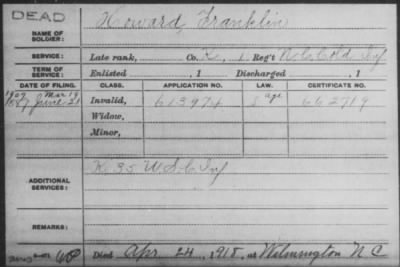 DEAD
NAME OF SOLDIER: Howard, Franklin
SERVICE: Late rank, Co. K, 1 Reg't N.C. Cold Inf
TERM OF SERVICE: Enlisted , 1 Discharged , 1
DATE OF FILING. CLASS. APPLICATION NO. LAW. CERTIFICATE NO.
1887 June 21 Invalid, 613974 age 662719
Widow,
Minor,
ADDITIONAL SERVICES: K 35 U.S.C. Inf
REMARKS:
Died Apr. 24, 1918, at Wilmington N C